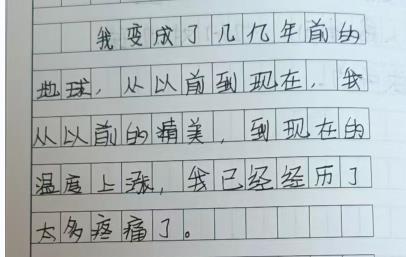 我变成了几亿年前的
地球，从以前到现在，我
从以前的精美，到现在的
温度上涨，我已经经历了
太多疼痛了。